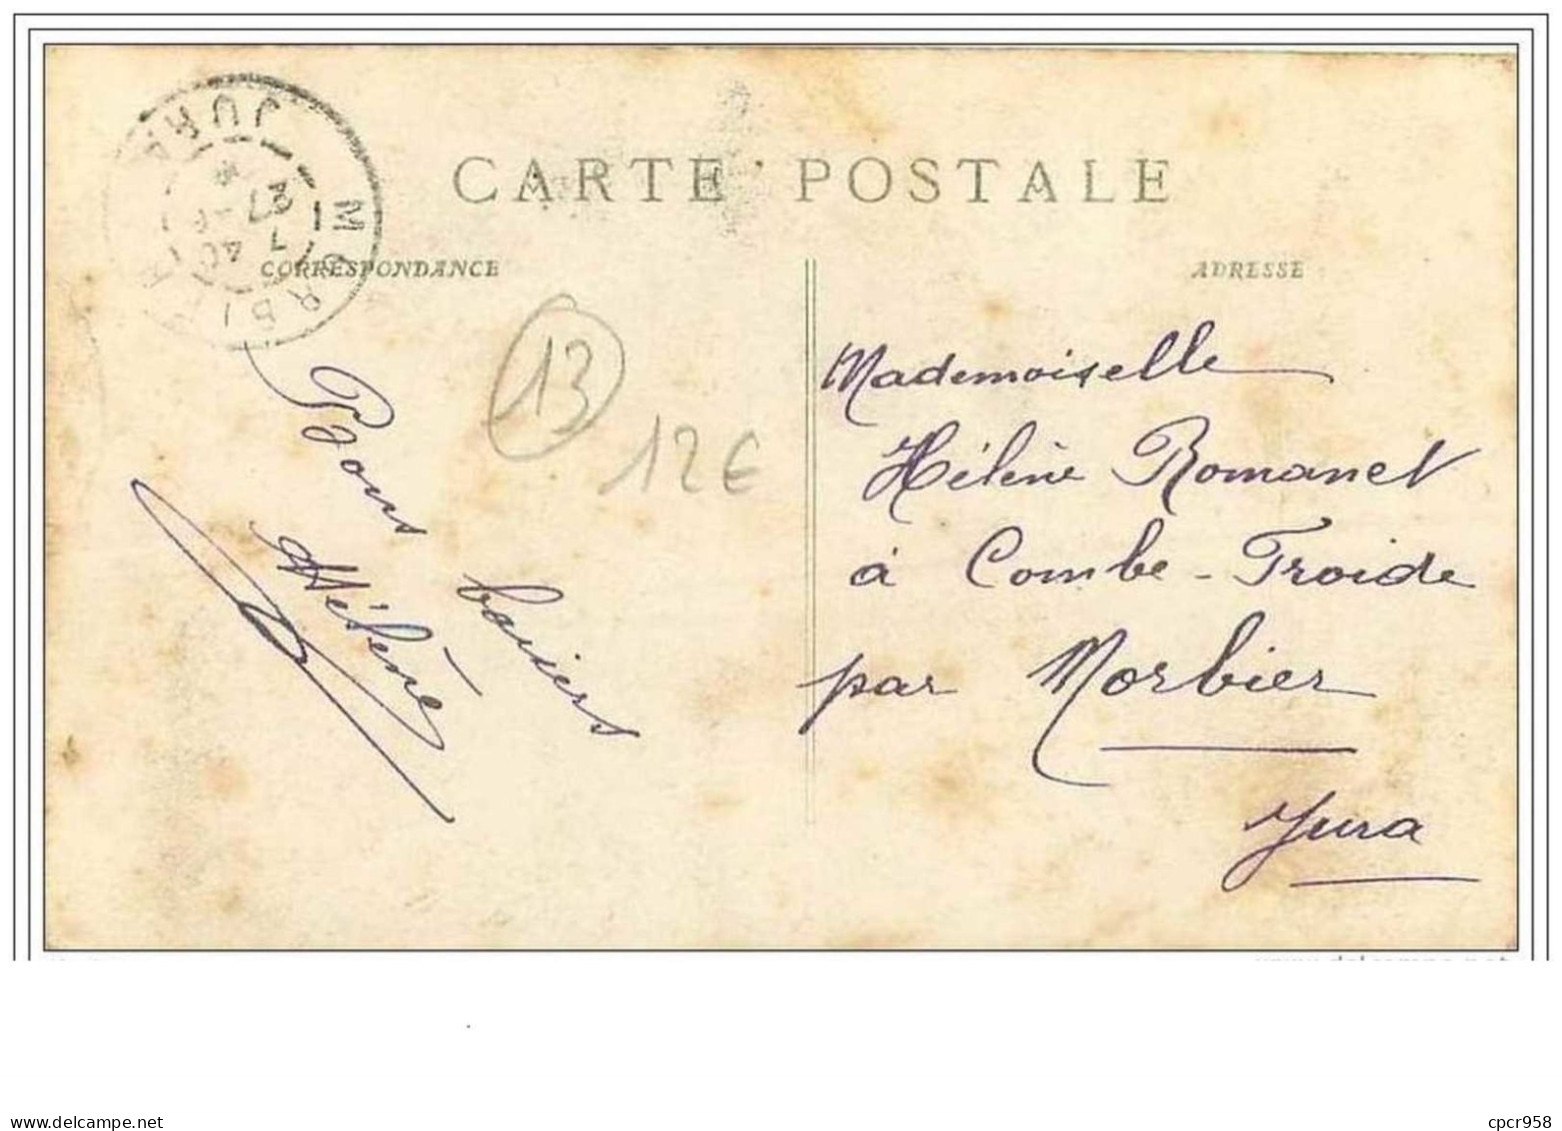 CARTE POSTALE
CORRESPONDANCE
ADRESSE
MORBIER
JURA
7 40
27
13
12€
Bons baisers
Hélène
Mademoiselle
Hélène Romanet
à Combe-Froide
par Morbier
Jura
cpcr958
delcampe.net